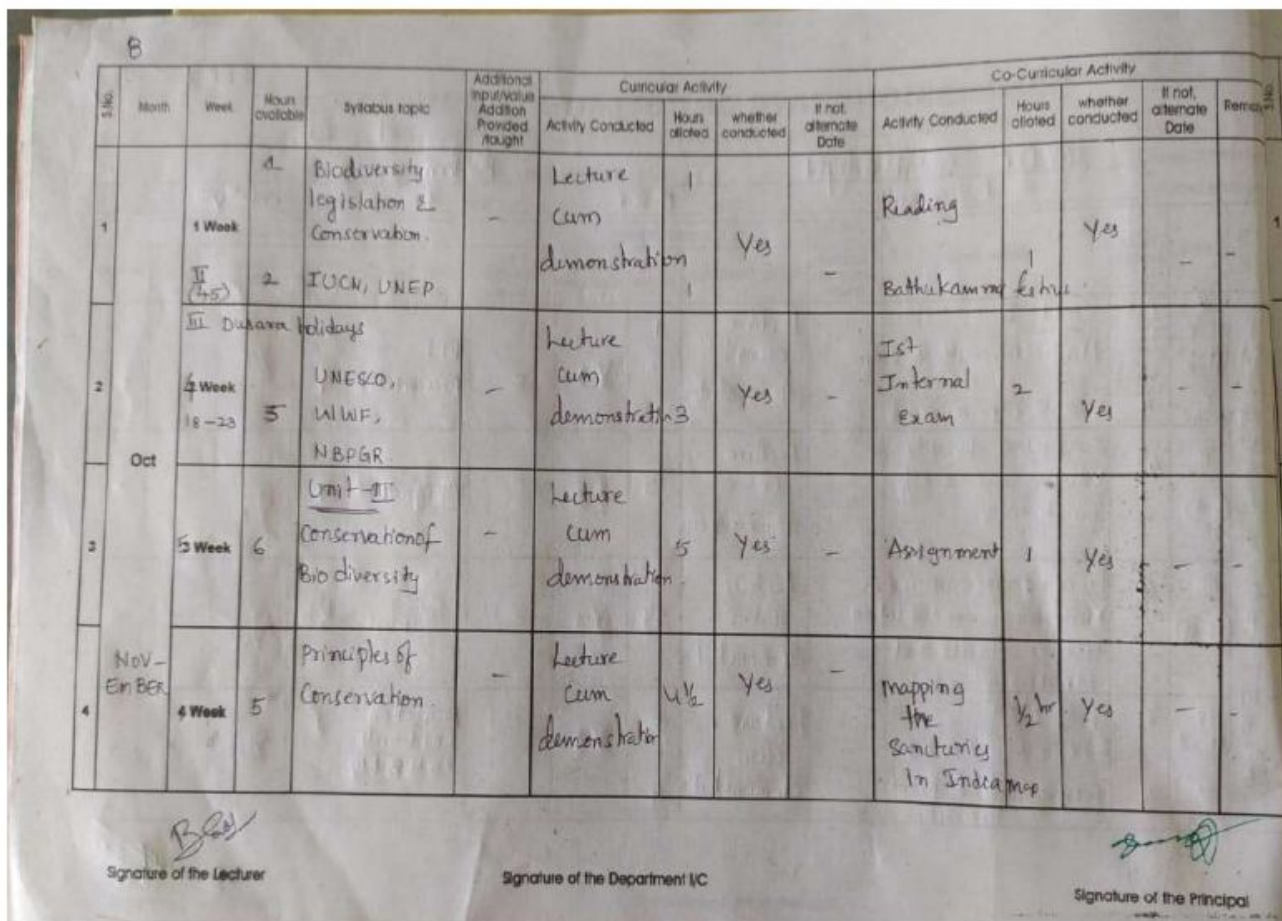 8
S.No.
Month
Week
Hours available
Syllabus topic
Additional Input/value Addition Provided /taught
Curricular Activity
Activity Conducted
Hours alloted
whether conducted
If not, alternate Date
Co-Curricular Activity
Activity Conducted
Hours alloted
whether conducted
If not, alternate Date
S.No.
1
1 Week
II
(45)
2
Biodiversity
legislation &
Conservation.
IUCN, UNEP.
-
Lecture
cum
demonstration
1
1
Yes
-
Reading
Bathukamma
1
Yes
-
-
1
2
Oct
III Dusara holidays
4 Week
18-23
5
UNESCO,
WWF,
NBPGR.
-
Lecture
cum
demonstration
3
Yes
-
Ist
Internal
Exam
2
Yes
-
-
3
5 Week
6
Unit-III
Conservation of
Bio diversity
-
Lecture
cum
demonstration.
5
Yes
-
Assignment
1
Yes
-
-
4
NOV-
EMBER
4 Week
5
Principles of
Conservation.
-
Lecture
cum
demonstration
4½
Yes
-
Mapping
the
Sancturies
In India map
½ hr
Yes
-
-
Signature of the Lecturer
Signature of the Department I/C
Signature of the Principal